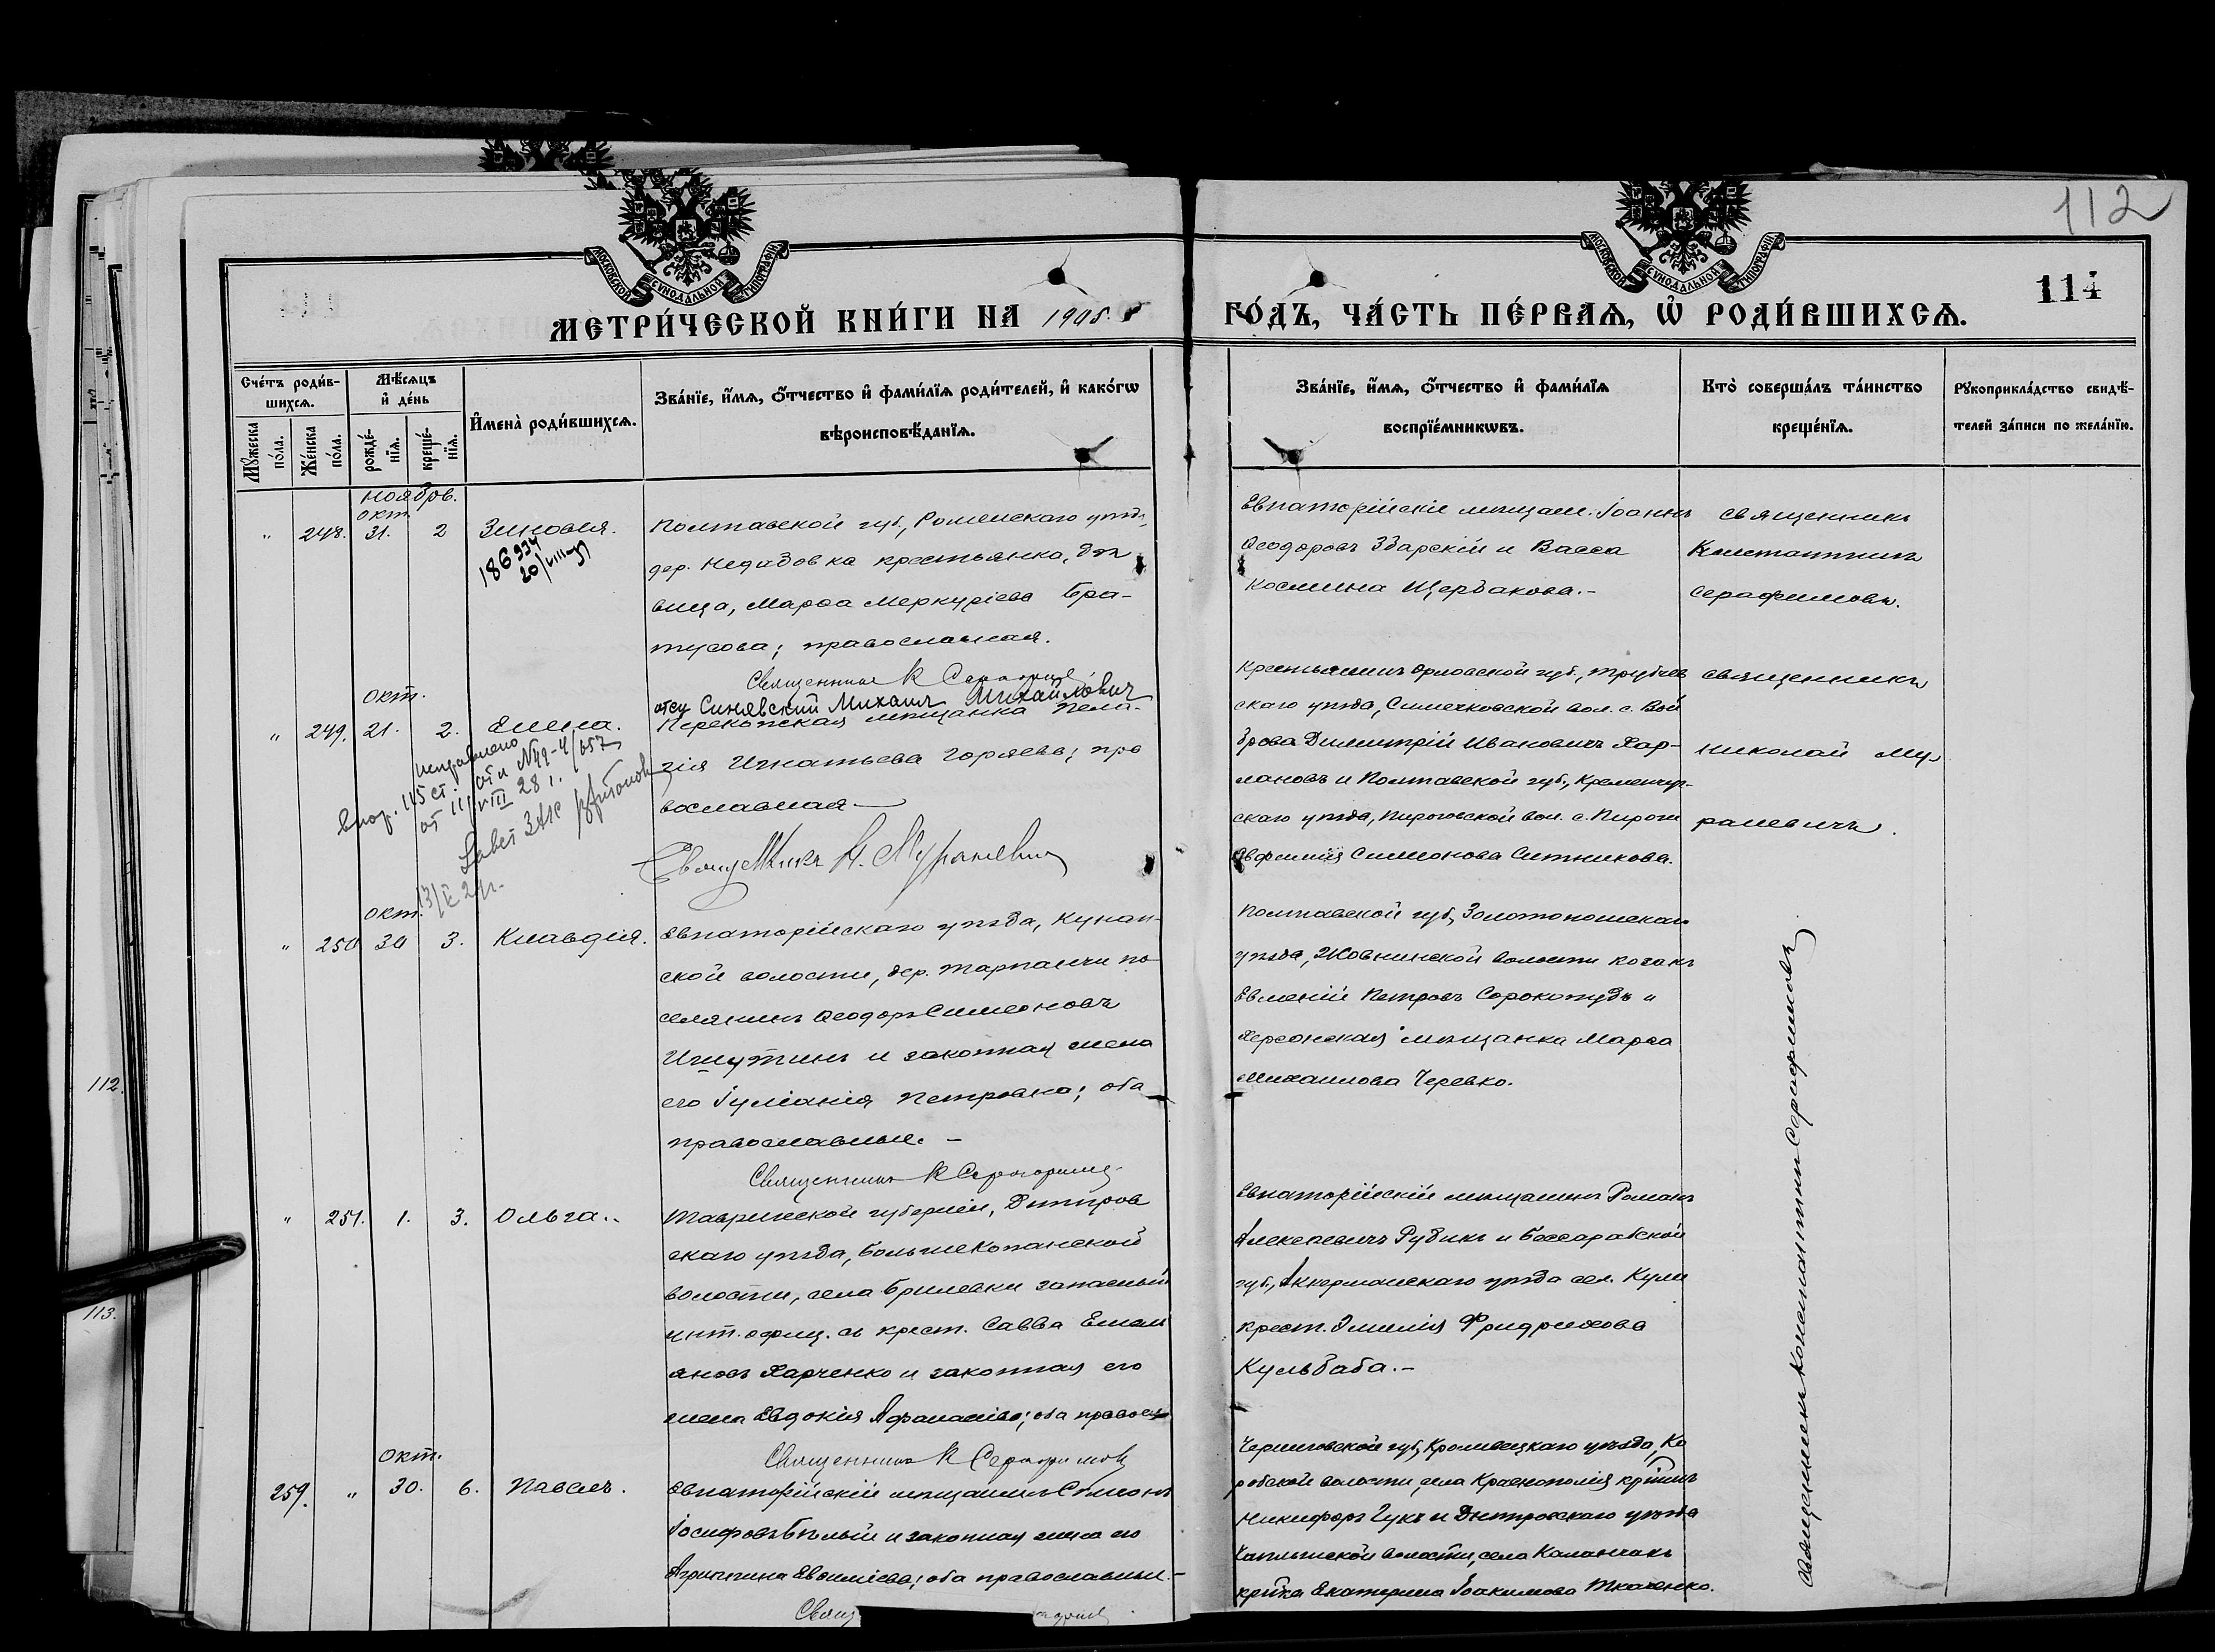 112
114
МОСКОВСКОЙ СѴНОДАЛЬНОЙ ТИПОГРАФІИ
МОСКОВСКОЙ СѴНОДАЛЬНОЙ ТИПОГРАФІИ
МЕТРИ́ЧЕСКОЙ КНИ́ГИ НА 1908.
ГО́ДЪ, ЧА́СТЬ ПЕ́РВАѦ, Ѡ҆ РОДИ́ВШИХСѦ.
Сче́тъ роди́в-
шихсѧ.
Мꙋ́жеска по́ла.
Же́нска по́ла.
Мѣ́сѧцъ
и҆ де́нь
рожде́-
нїѧ.
креще́-
нїѧ.
И҆мена̀ роди́вшихсѧ.
Зва́нїе, и҆́мѧ, ѻ҆́тчество и҆ фами́лїѧ роди́телей, и҆ како́гѡ
вѣроисповѣ́данїѧ.
Зва́нїе, и҆́мѧ, ѻ҆́тчество и҆ фами́лїѧ
воспрїе́мникѡвъ.
Кто̀ соверша́лъ та́инство
креще́нїѧ.
Рꙋкоприкла́дство свидѣ́-
телей за́писи по жела́нїю.
ноябрь.
окт.
" 248. 31. 2 Зиновья.
186934
Полтавской губ., Роменскаго уѣзда,
дер. Недабовка крестьянка, дѣ
вица, Марѳа Меркуріева Бра-
тусова; православная.
Священник К Серафимов
Евпаторійскіе мѣщане: Іоаннъ
Ѳеодоровъ Збарскій и Васса
Космина Щербакова.-
священникъ
Константинъ
Серафимовъ.
окт.
" 249. 21. 2. Елена.
исправлено
от 11/VIII 28 г.
отец Синявский Михаил Михайлович
Перекопская мѣщанка Пела-
гія Игнатьева Горяева; пра
вославная
Священникъ Н. Мураневич
Крестьянинъ Орловской губ., Трубчев
скаго уѣзда, Симечковской вол. с. Вой
брова Димитрій Ивановичъ Хар-
лановъ и Полтавской губ., Кременчуг-
скаго уѣзда, Пироговской вол. с. Пироги
Евфимія Симеонова Ситникова.
священникъ
Николай Му
раневичъ.
окт.
" 250 30 3. Клавдія.
Евпаторійскаго уѣзда, Кунан-
ской волости, дер. Тарпанчи по-
селянинъ Ѳеодоръ Симеоновъ
Ишутинъ и законная жена
его Іуліанія Петровна; оба
православные. -
Священник К Серафимов
Полтавской губ., Золотоношскаго
уѣзда, Жовнинской волости козакъ
Евменій Петровъ Сорокопудъ и
Херсонская мѣщанка Марѳа
Михаилова Черевко.
112.
" 251. 1. 3. Ольга..
Таврической губерніи, Днѣпров
скаго уѣзда, Большекопанской
волости, села Брилевки запасный
унт. офиц. съ крест. Савва Емели
ановъ Харченко и законная его
жена Евдокія Афанасіева; оба правосл
Священник К Серафимов
Евпаторійскій мѣщанинъ Романъ
Алексѣевичъ Рудикъ и Бессарабской
губ., Аккерманскаго уѣзда сел. Кулм
крест. Эмилія Фридрихова
Кульбаба.-
113.
окт.
259. " 30. 6. Павелъ.
Евпаторійскій мѣщанинъ Симеонъ
Іосифовъ Бѣлый и законная жена его
Агриппина Евѳиміева; оба православные.-
Свящ
Черниговской губ., Кролевецкаго уѣзда, Ко
робской волости, села Краснополія кр-нинъ
Никифоръ Гукъ и Днѣпровскаго уѣзда
Чаплынской волости, села Каланчакъ
кр-нка Екатерина Іоакимова Ткаченко.
Священникъ Константинъ Серафимовъ